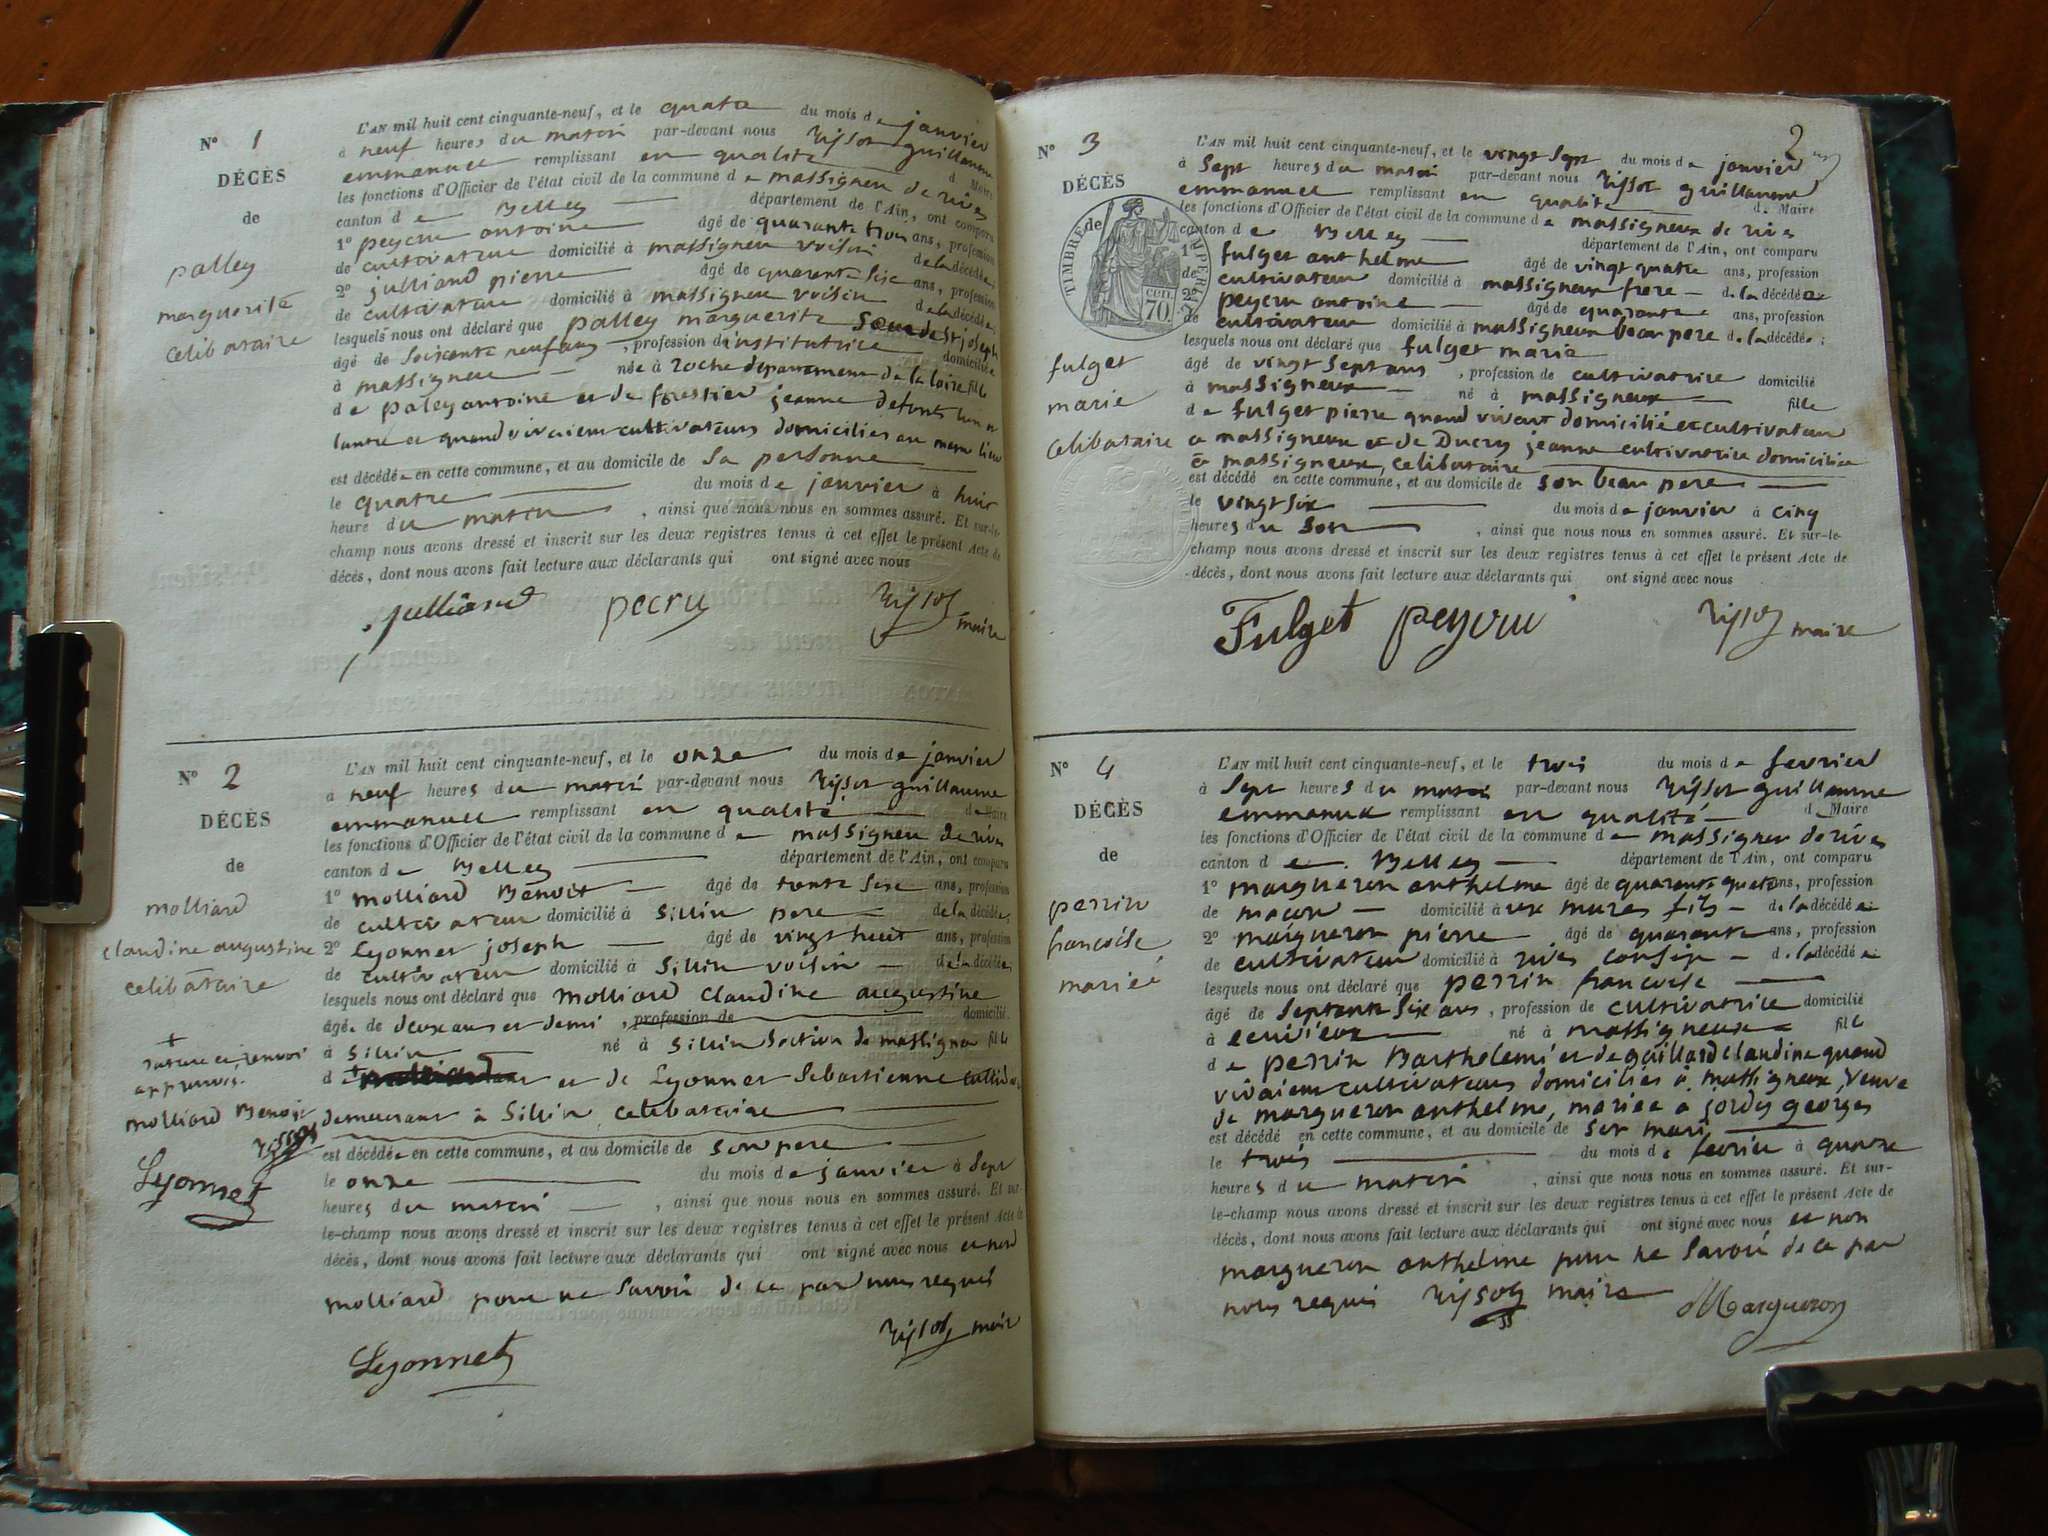 N° 1
DÉCÈS
de
palley
marguerite
celibataire
L'AN mil huit cent cinquante-neuf, et le quatre du mois de janvier
à neuf heures du matin par-devant nous Rissot guillaume
emmanuel remplissant en qualité d Maire
les fonctions d'Officier de l'état civil de la commune de massigneu de rives
canton de Belley département de l'Ain, ont comparu
1° peyeru antoine âgé de quarante trois ans, profession
de cultivateur domicilié à massigneu voisin de la décédée;
2° julliand pierre âgé de quarante six ans, profession
de cultivateur domicilié à massigneu voisin de la décédée
lesquels nous ont déclaré que palley marguerite Sœur de St joseph
âgé de soixante neuf ans, profession d'institutrice domiciliée
à massigneu née à roche departement de la loire fille
de paley antoine et de forestier jeanne defunts l'un et
lautre et quand vivaient cultivateurs domicilies au meme lieu
est décédée en cette commune, et au domicile de sa personne
le quatre du mois de janvier à huit
heure du matin, ainsi que nous nous en sommes assuré. Et sur-le-
champ nous avons dressé et inscrit sur les deux registres tenus à cet effet le présent Acte de
décès, dont nous avons fait lecture aux déclarants qui ont signé avec nous
julliand pecru Rissot maire
N° 2
DÉCÈS
de
molliard
claudine augustine
celibataire
+
rature et renvoi
approuvés.
molliard Benoit
Lyonnet
L'AN mil huit cent cinquante-neuf, et le onze du mois de janvier
à neuf heures du matin par-devant nous Rissot guillaume
emmanuel remplissant en qualité de Maire
les fonctions d'Officier de l'état civil de la commune de massigneu de rives
canton de Belley département de l'Ain, ont comparu
1° molliard Benoit âgé de trente six ans, profession
de cultivateur domicilié à Sillin pere de la décédée;
2° Lyonnet joseph âgé de vingt huit ans, profession
de cultivateur domicilié à Sillin voisin de la décédée
lesquels nous ont déclaré que molliard claudine augustine
âgé de deux ans et demi, profession de domicilié
à Sillin né à Sillin Section de massigneu fille
d + et de Lyonnet Sebastienne
demeurant à Sillin celibataire
est décédée en cette commune, et au domicile de son pere
le onze du mois de janvier à sept
heures du matin, ainsi que nous nous en sommes assuré. Et sur-
le-champ nous avons dressé et inscrit sur les deux registres tenus à cet effet le présent Acte de
décès, dont nous avons fait lecture aux déclarants qui ont signé avec nous et non
molliard pour ne savoir de ce par nous requis
Lyonnet Rissot maire
2
N° 3
DÉCÈS
de
TIMBRE IMPÉRIAL
70 cen.
fulget
marie
celibataire
L'AN mil huit cent cinquante-neuf, et le vingt sept du mois de janvier
à sept heures du matin par-devant nous Rissot guillaume
emmanuel remplissant en qualité d. Maire
les fonctions d'Officier de l'état civil de la commune de massigneux de rives
canton de Belley département de l'Ain, ont comparu
1° fulget anthelme âgé de vingt quatre ans, profession
de cultivateur domicilié à massigneux frere de la décédée
2° peyeru antoine âgé de quarante ans, profession
de cultivateur domicilié à massigneux beau pere de la décédée;
lesquels nous ont déclaré que fulget marie
âgé de vingt sept ans, profession de cultivatrice domicilié
à massigneux né à massigneux fille
de fulget pierre quand vivait domicilié et cultivateur
a massigneux et de Ducruy jeanne cultivatrice domiciliée
à massigneux, celibataire
est décédé en cette commune, et au domicile de son beau pere
le vingt six du mois de janvier à cinq
heures du soir, ainsi que nous nous en sommes assuré. Et sur-le-
champ nous avons dressé et inscrit sur les deux registres tenus à cet effet le présent Acte de
décès, dont nous avons fait lecture aux déclarants qui ont signé avec nous
Fulget peyeru Rissot maire
N° 4
DÉCÈS
de
perrin
francoise
mariée
L'AN mil huit cent cinquante-neuf, et le trois du mois de fevrier
à sept heures du matin par-devant nous Rissot guillaume
emmanuel remplissant en qualité d Maire
les fonctions d'Officier de l'état civil de la commune de massigneu de rives
canton de Belley département de l'Ain, ont comparu
1° margueron anthelme âgé de quarante quatre ans, profession
de macon domicilié à aux mures fils de la décédée
2° margueron pierre âgé de quarante ans, profession
de cultivateur domicilié à rives consin de la décédée
lesquels nous ont déclaré que perrin francoise
âgé de septante six ans, profession de cultivatrice domicilié
à né à massigneux fille
de perrin Barthelemi et de gaillard claudine quand
vivaient cultivateurs domicilies à massigneux, veuve
de margueron anthelme, mariée a gordy georges
est décédé en cette commune, et au domicile de son mari
le trois du mois de fevrier à quatre
heures du matin, ainsi que nous nous en sommes assuré. Et sur-
le-champ nous avons dressé et inscrit sur les deux registres tenus à cet effet le présent Acte de
décès, dont nous avons fait lecture aux déclarants qui ont signé avec nous et non
margueron anthelme pour ne savoir de ce par
nous requis Rissot maire Margueron